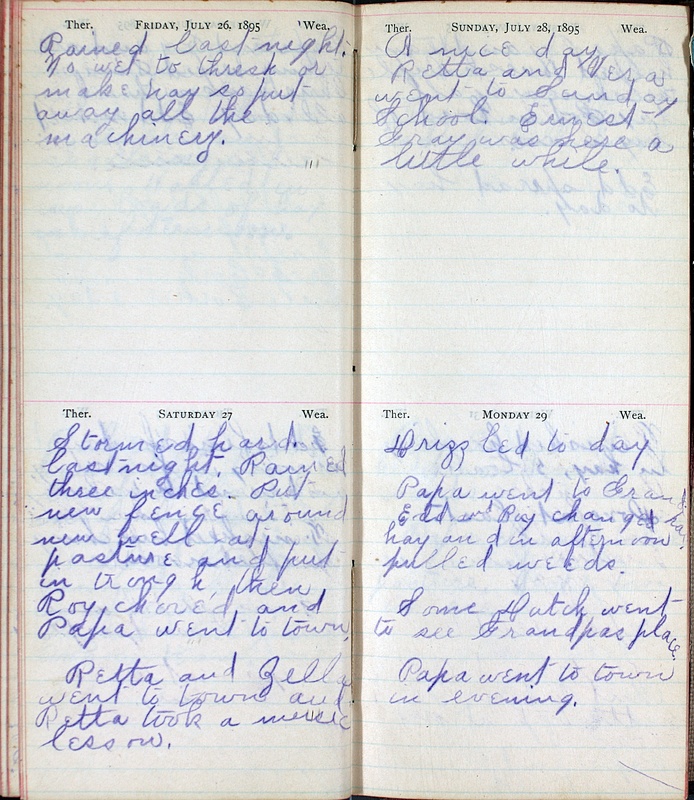 Ther. FRIDAY, JULY 26, 1895 Wea.
Rained last night.
To wet to thresh or
make hay so put
away all the
machinery.
Ther. SATURDAY 27 Wea.
Stormed hard.
last night. Rained
three inches. Put
new fence around
new well at
pasture and put
in trough, then
Roy chored and
Papa went to town,
Retta and Zella
went to town and
Retta took a music
lesson.
Ther. SUNDAY, JULY 28, 1895 Wea.
A nice day
Retta and Vera
went to Sunday
School. Ernest
Gray was here a
little while.
Ther. MONDAY 29 Wea.
Drizzled to day
Papa went to Grandpas.
Ed w Roy changed
hay and in afternoon
pulled weeds.
Some Dutch went
to see Grandpas place.
Papa went to town
in evening.